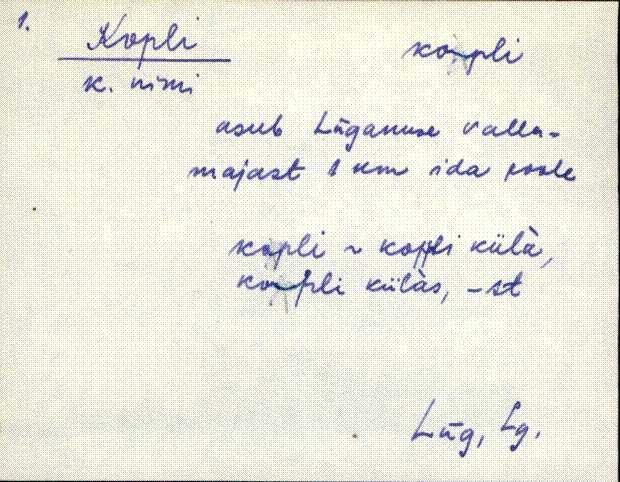 1.
Kopli
kopli
k. nimi
asub Lüganuse valla-
majast 1 km ida poole
kopli ~ kopli külà,
kopli külàs, -st
Lüg, Lg.